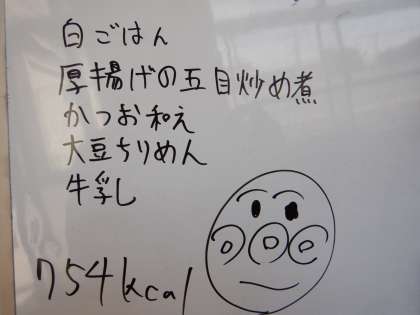 白ごはん
厚揚げの五目炒め煮
かつお和え
大豆ちりめん
牛乳し
754kcal